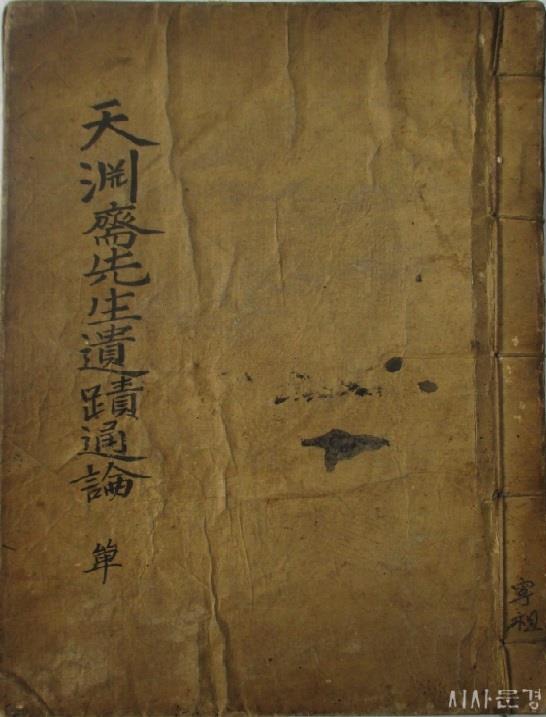 天淵齋先生遺蹟通論 單
寧祖
시사문경